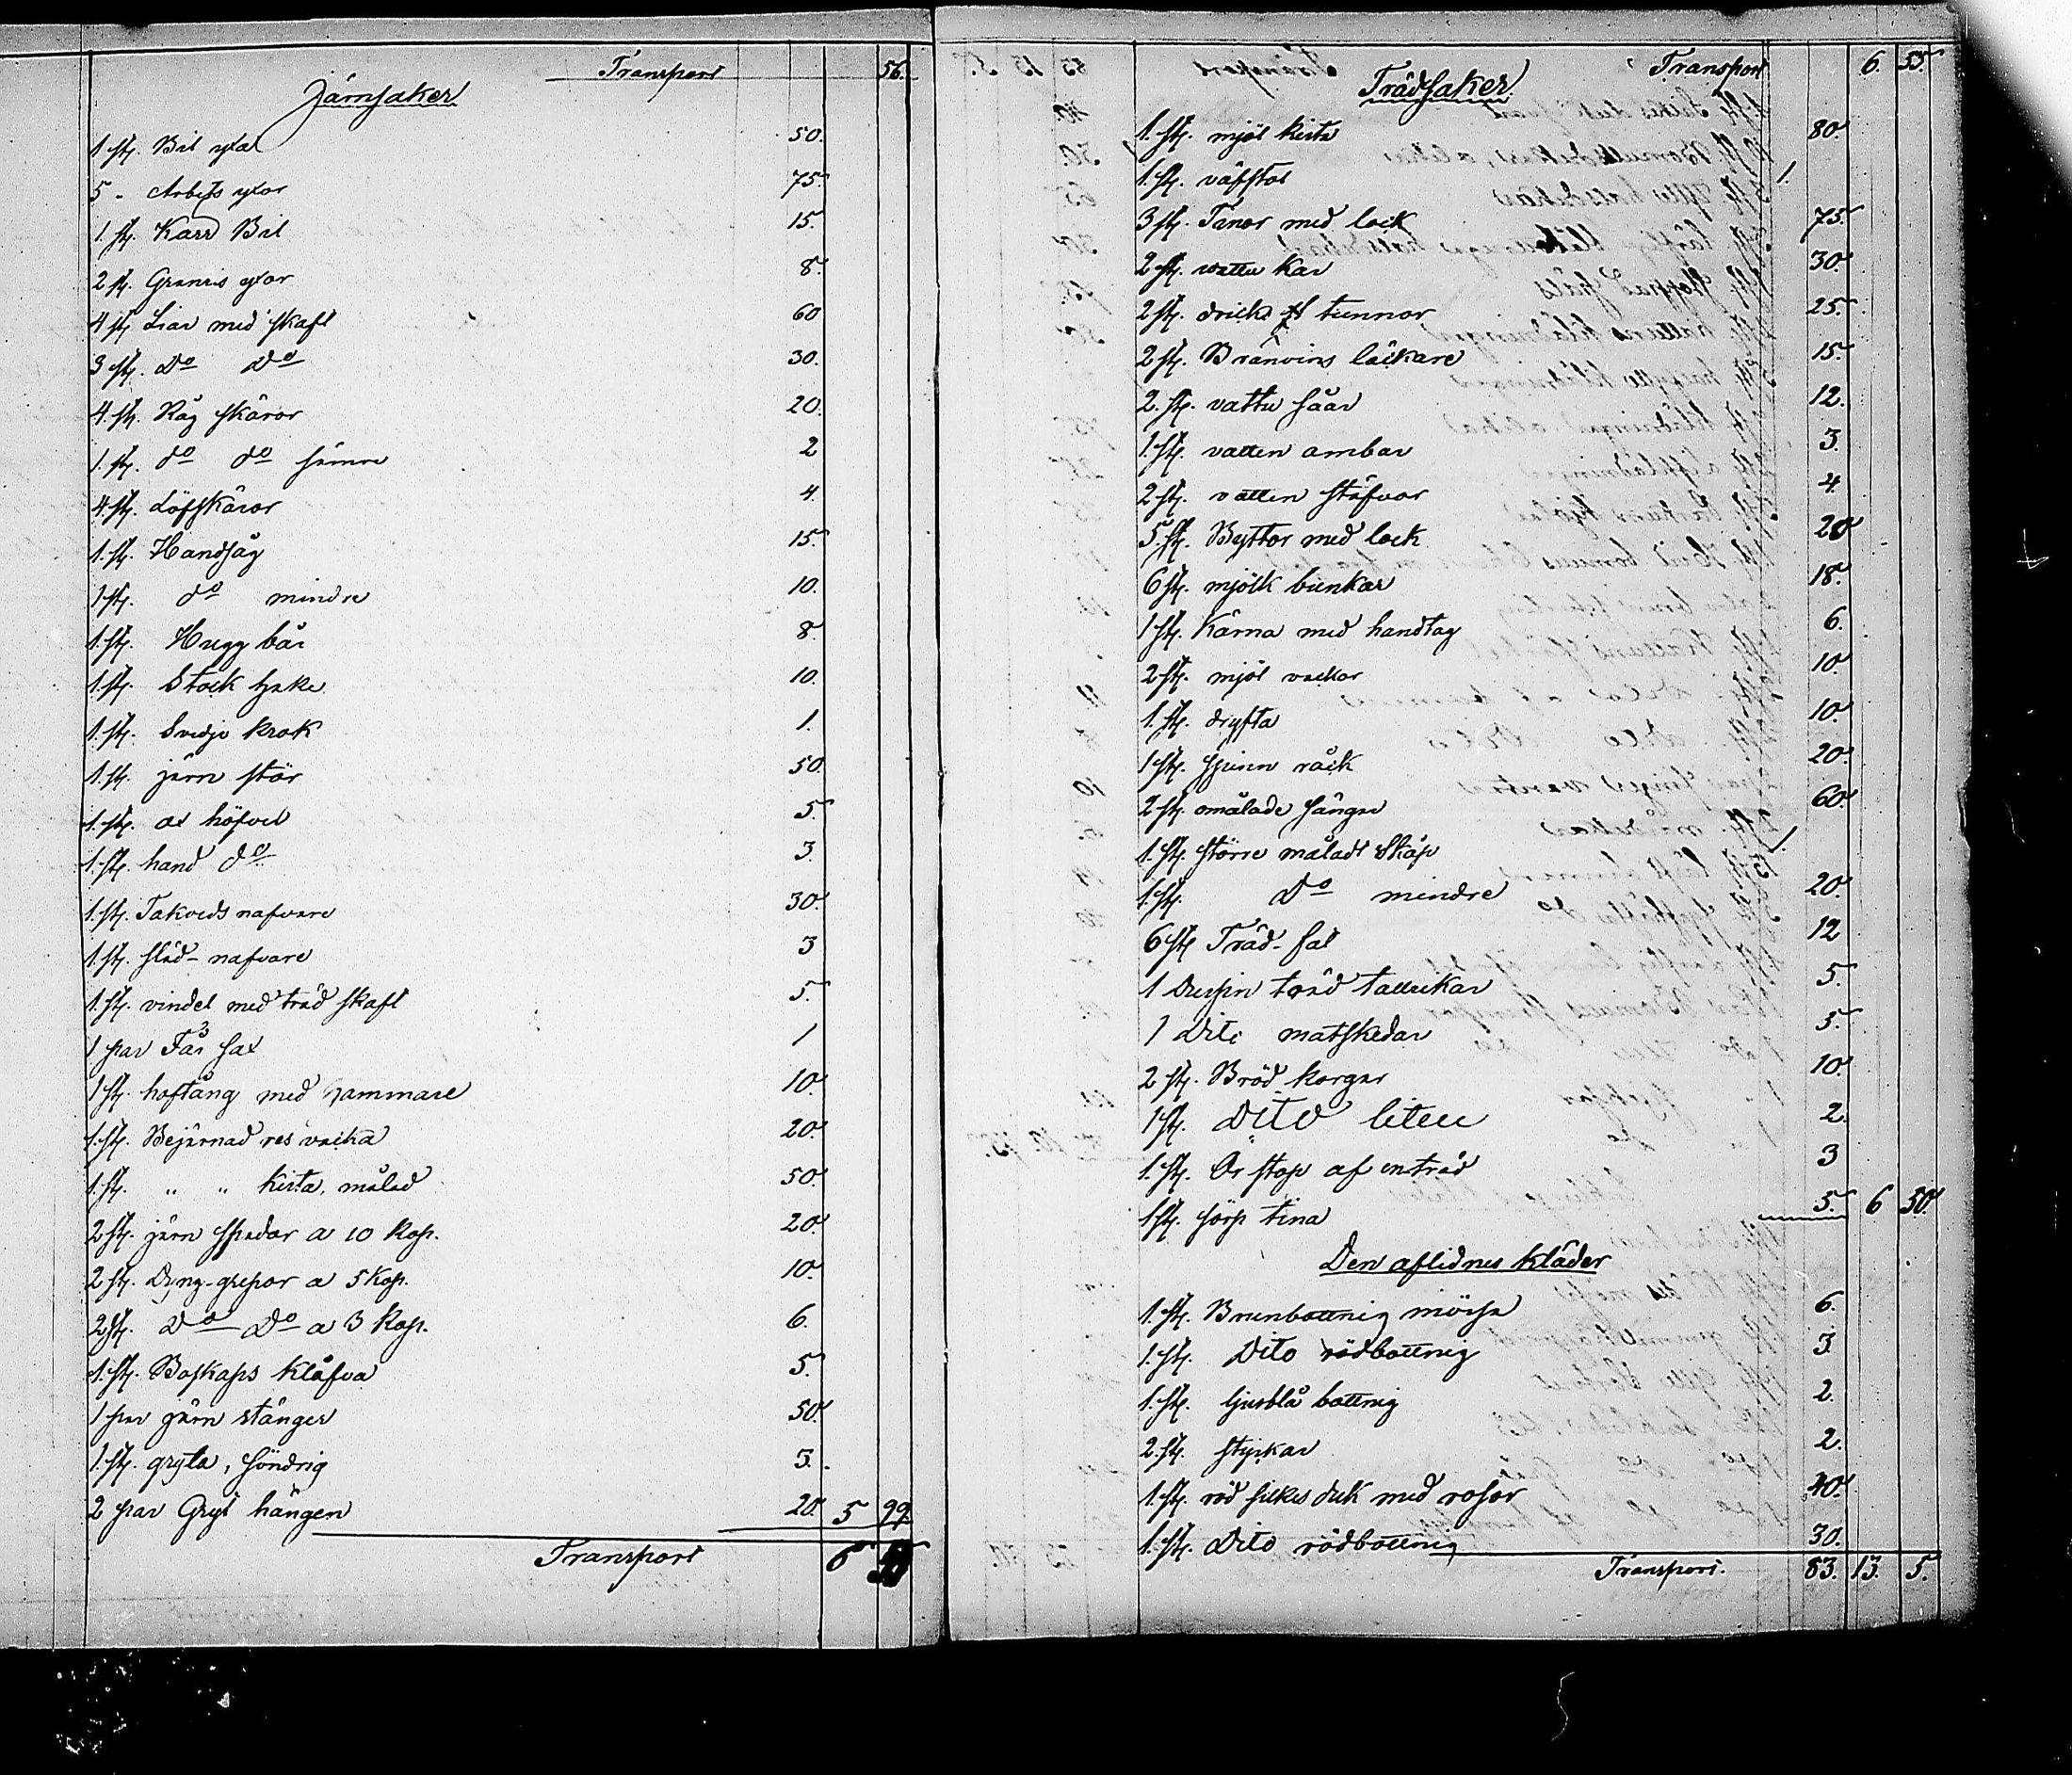 Transport 56.
Järnsaker
1 st. Bil yxa 50.
5 " Arbets yxor 75.
1 st. Karr Bil 15.
2 st. Granris yxor 8.
4 st. Liar med skaft 60
3 st. Do Do 30.
4. st. Råg skäror 20.
1. st. do do sämre 2
4. st. Löfskäror 4.
1. st. Handsåg 15
1 st. do mindre 10.
1 st. Hugg bår 8.
1. st. Stock hake 10.
1. st. Svedje krok 1.
1. st. järn stör 50.
1. st. ox höfvel 5.
1. st. hand do 3.
1. st. Takveds nafvare 30.
1. st. släd-nafvare 3
1. st. vindel med träd skaft 5.
1 par Får sax 1
1 st. hoftång med hammare 10.
1. st. Bejärnad res väska 20.
1. st. " " kista, målad 50.
2 st. järn spadar a 10 kop. 20.
2 st. Dyng-grepar a 5 Kop. 10.
2 st. Do Do a 3 Kop. 6.
1. st. Boskaps klåfva 5.
1 par järn stänger 50.
1. st. gryta, söndrig 5.
2 par Gryt hängen 20. 5 99
Transport 6
Transport 6. 55.
Trädsaker
1. st. mjöl kista 80.
1 st. väfstol 1.
3 st. Tinor med lock 75.
2 st. vattu kar 30.
2 st. dricks tunnor 25.
2 st. Bränvins läckare 15.
2. st. vattu såar 12.
1 st. vatten ambar 3.
2 st. vatten stäfvor 4.
5. st. Byttor med lock 20
6 st. mjölk bunkar 18.
1 st. Kärna med handtag 6.
2 st. mjöl vackor 10.
1. st. dryfta 10.
1 st. spinn råck 20.
2 st. omålade sängar 60
1. st. större måladt Skåp 1.
1. st. Do mindre 20.
6 st. Träd-fat 12
1 Dussin träd tallrikar 5.
1 Dito matskedar 5.
2 st. Bröd korgar 10.
1 st. Dito liten 2.
1. st. Ör stop af enträd 3
1 st. sörp tina 5. 6 50.
Den aflidnes kläder
1. st. Brunbottnig mössa 6.
1. st. Dito rödbottnig 3.
1. st. ljusblå bottnig 2.
2. st. styckar 2.
1. st. röd silkes duk med rosor 40.
1. st. Dito rödbottnig 30.
Transport. 83. 13. 5.